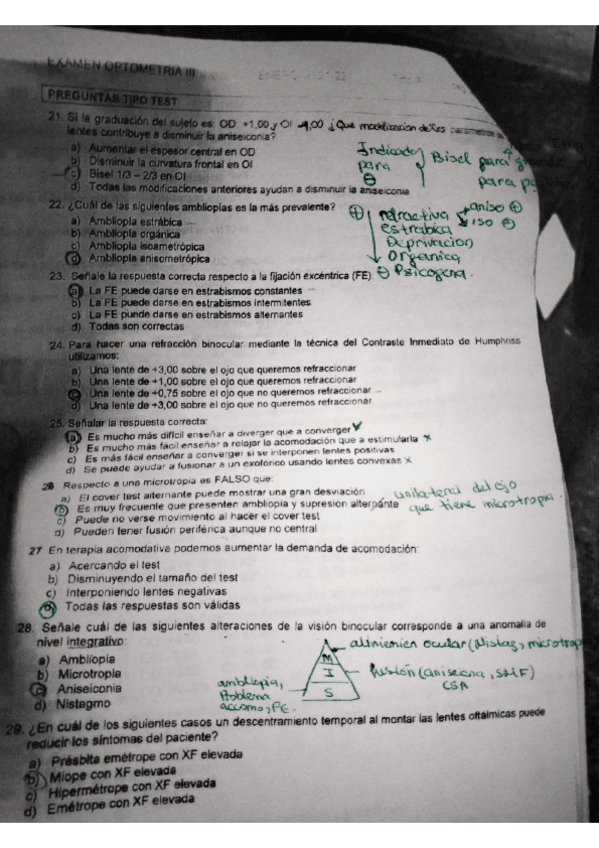 EXAMEN OPTOMETRIA III
ENERO
PREGUNTAS TIPO TEST
21. Si la graduación del sujeto es: OD: +1,00 y OI -4,00 ¿Que modificacion de los parametros
lentes contribuye a disminuir la aniseiconia?
a) Aumentar el espesor central en OD
b) Disminuir la curvatura frontal en OI
c) Bisel 1/3 – 2/3 en OI
d) Todas las modificaciones anteriores ayudan a disminuir la aniseiconia
Indicador Bisel para
para
⊖ para
22. ¿Cuál de las siguientes ambliopías es la más prevalente?
a) Ambliopía estrábica
b) Ambliopía orgánica
c) Ambliopía isoametrópica
d) Ambliopía anisometrópica
⊕ refractiva aniso ⊕
iso ⊕
estrabica
Deprivacion
Organica
⊖ Psicogena.
23. Señale la respuesta correcta respecto a la fijación excéntrica (FE):
a) La FE puede darse en estrabismos constantes
b) La FE puede darse en estrabismos intermitentes
c) La FE puede darse en estrabismos alternantes
d) Todas son correctas
24. Para hacer una refracción binocular mediante la técnica del Contraste Inmediato de Humphriss
utilizamos:
a) Una lente de +3,00 sobre el ojo que queremos refraccionar
b) Una lente de +1,00 sobre el ojo que queremos refraccionar
c) Una lente de +0,75 sobre el ojo que no queremos refraccionar
d) Una lente de +3,00 sobre el ojo que no queremos refraccionar
25. Señalar la respuesta correcta:
a) Es mucho más difícil enseñar a diverger que a converger
b) Es mucho más fácil enseñar a relajar la acomodación que a estimularla x
c) Es más fácil enseñar a converger si se interponen lentes positivas
d) Se puede ayudar a fusionar a un exofórico usando lentes convexas x
26 Respecto a una microtropia es FALSO que:
a) El cover test alternante puede mostrar una gran desviación
b) Es muy frecuente que presenten ambliopía y supresión alternante
c) Puede no verse movimiento al hacer el cover test
d) Pueden tener fusión periférica aunque no central
unilateral del ojo
que tiene microtropia.
27 En terapia acomodativa podemos aumentar la demanda de acomodación:
a) Acercando el test
b) Disminuyendo el tamaño del test
c) Interponiendo lentes negativas
d) Todas las respuestas son válidas
28. Señale cuál de las siguientes alteraciones de la visión binocular corresponde a una anomalía de
nivel integrativo:
a) Ambliopía
b) Microtropia
c) Aniseiconia
d) Nistagmo
ocular (Nistag, microtropi
M
I
S
fusión (aniseicna,
CSA
ambliopia,
Problema
accomo, FE.
29. ¿En cuál de los siguientes casos un descentramiento temporal al montar las lentes oftálmicas puede
reducir los síntomas del paciente?
a) Présbita emétrope con XF elevada
b) Miope con XF elevada
c) Hipermétrope con XF elevada
d) Emétrope con XF elevada